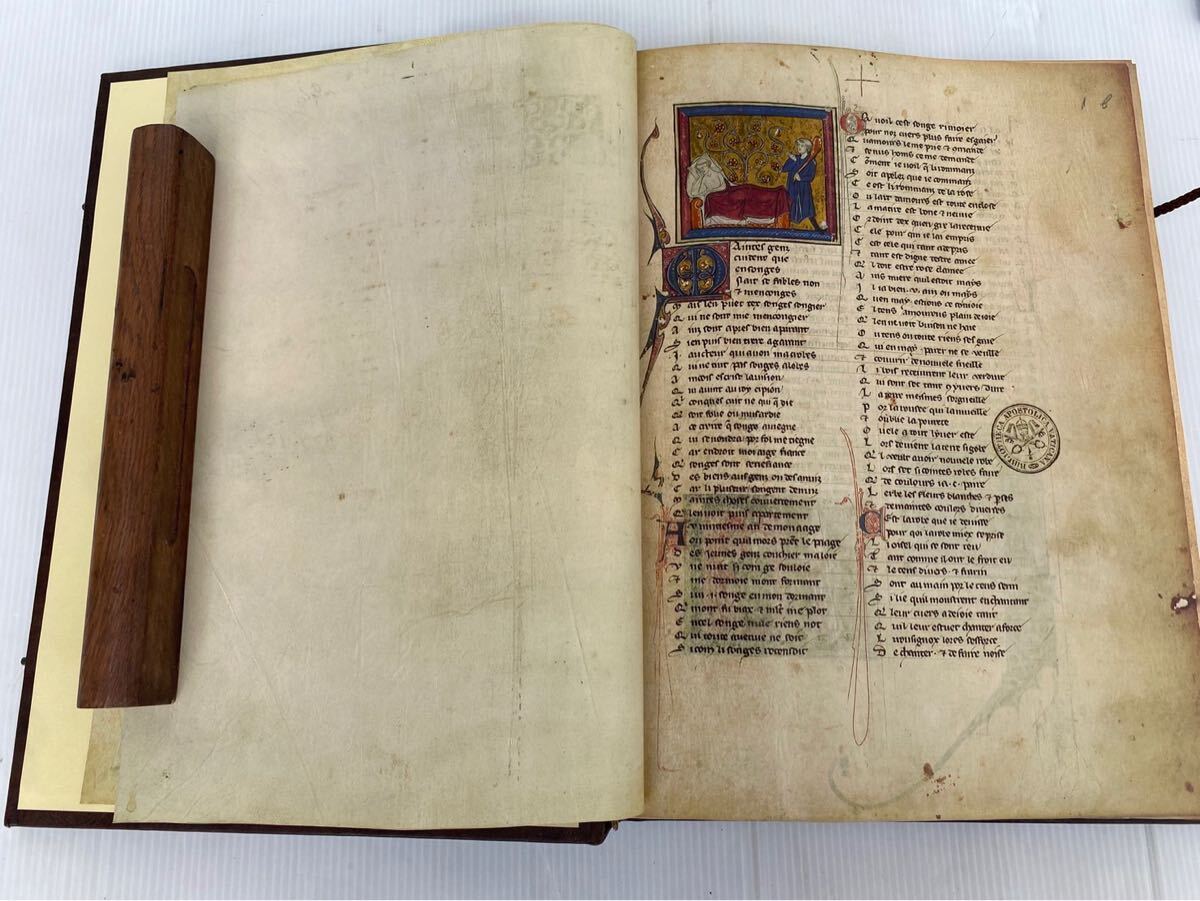 Maintes genz
cuident que
en songes
N ait se fables non
& menconges
M ais len puet tex songes songier
Q ui ne sont mie mencongier
A inz sont apres bien aparant
S i en puis bien trere a garant
I . aucteur qui a non macrobes
Q ui ne tint pas songes a lobes
A incois escrist la vision
Q ui avint au roy cipion
Q conques cuit ne qui q dit
Q soit folie ou musardie
A ce croire q songe aviegne
Q ui se voudra por fol me tiegne
C ar endroit moi ai ge fiance
Q songes sont senefiance
D es biens aus genz ou des anuiz
C ar li plusieur songent de nuiz
M aintes choses couvertement
Q len voit puis apartement
A u vintiesme an de mon aage
O u point quamors prent le paage
D es jeunes genz couchier maloie
V ne nuit si com ge souloie
& me dormoie mout forment
S i vi .i. songe en mon dormant
Q mout fu biax & mlt me plot
E n cel songe nule riens not
Q ui toute avenue ne soit
S i com li songes recensoit
O r voil cest songe rimoier
pour noz cuers plus faire esgaier
Q uamours le me prie & commande
& se nus hons ce me demande
C omment ie voil q li rommanz
S oit apelez que ie commanz
C e est li rommanz de la rose
O u lart damours est toute enclose
L a matire est bone & nueve
O r doint dex quen gre la recueve
C ele pour qui ie lai empris
C est cele qui tant a de pris
& tant est digne destre amee
Q l doit estre rose clamee
A vis miere quil estoit mays
I l i a bien .v. anz ou mays
Q uen may estions ce songoie
E l tens amoureus plain de ioie
Q len ne voit buison ne haie
O u tens ou toute riens ses gaie
Q ui en may parer ne se veille
& couvrir de nouvele fueille
L i bois recueuvrent leur verdure
Q ui sont sec tant q yvers dure
L a terre meismes sorgueille
P or la rousee qui la mueille
& oublie la povrete
O u ele a tout lyver este
L ors devient la terre si gobe
Q l veut avoir nouvele robe
L ors set si cointes robes faire
Q de coulours i a .c. paire
L erbe les fleurs blanches & perses
& de maintes coulers diverses
C est la robe que ie devise
pour qoi la robe miex se prise
L i oisel qui se sont teu
T ant comme il ont le froit eu
& le tens divers & frarin
S ont au main por le tens serin
S i lie qui moustrent en chantant
Q leur cuers a de ioie tant
Q uil leur estuet chanter a force
L i rousignox lores sesforce
D e chanter & de faire noise
BIBLIOTHECA APOSTOLICA VATICANA